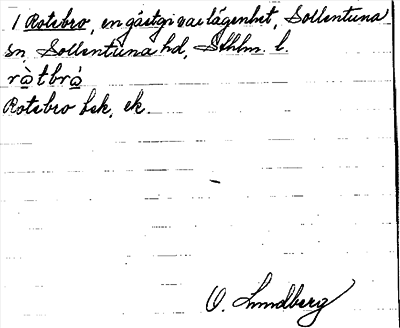 1 Rotebro, en gästgivarlägenhet, Sollentuna
sn Sollentuna hd, Sthlm. l.
rò̲tbrò̲
Rotebro bek, ek.
O. Lundberg